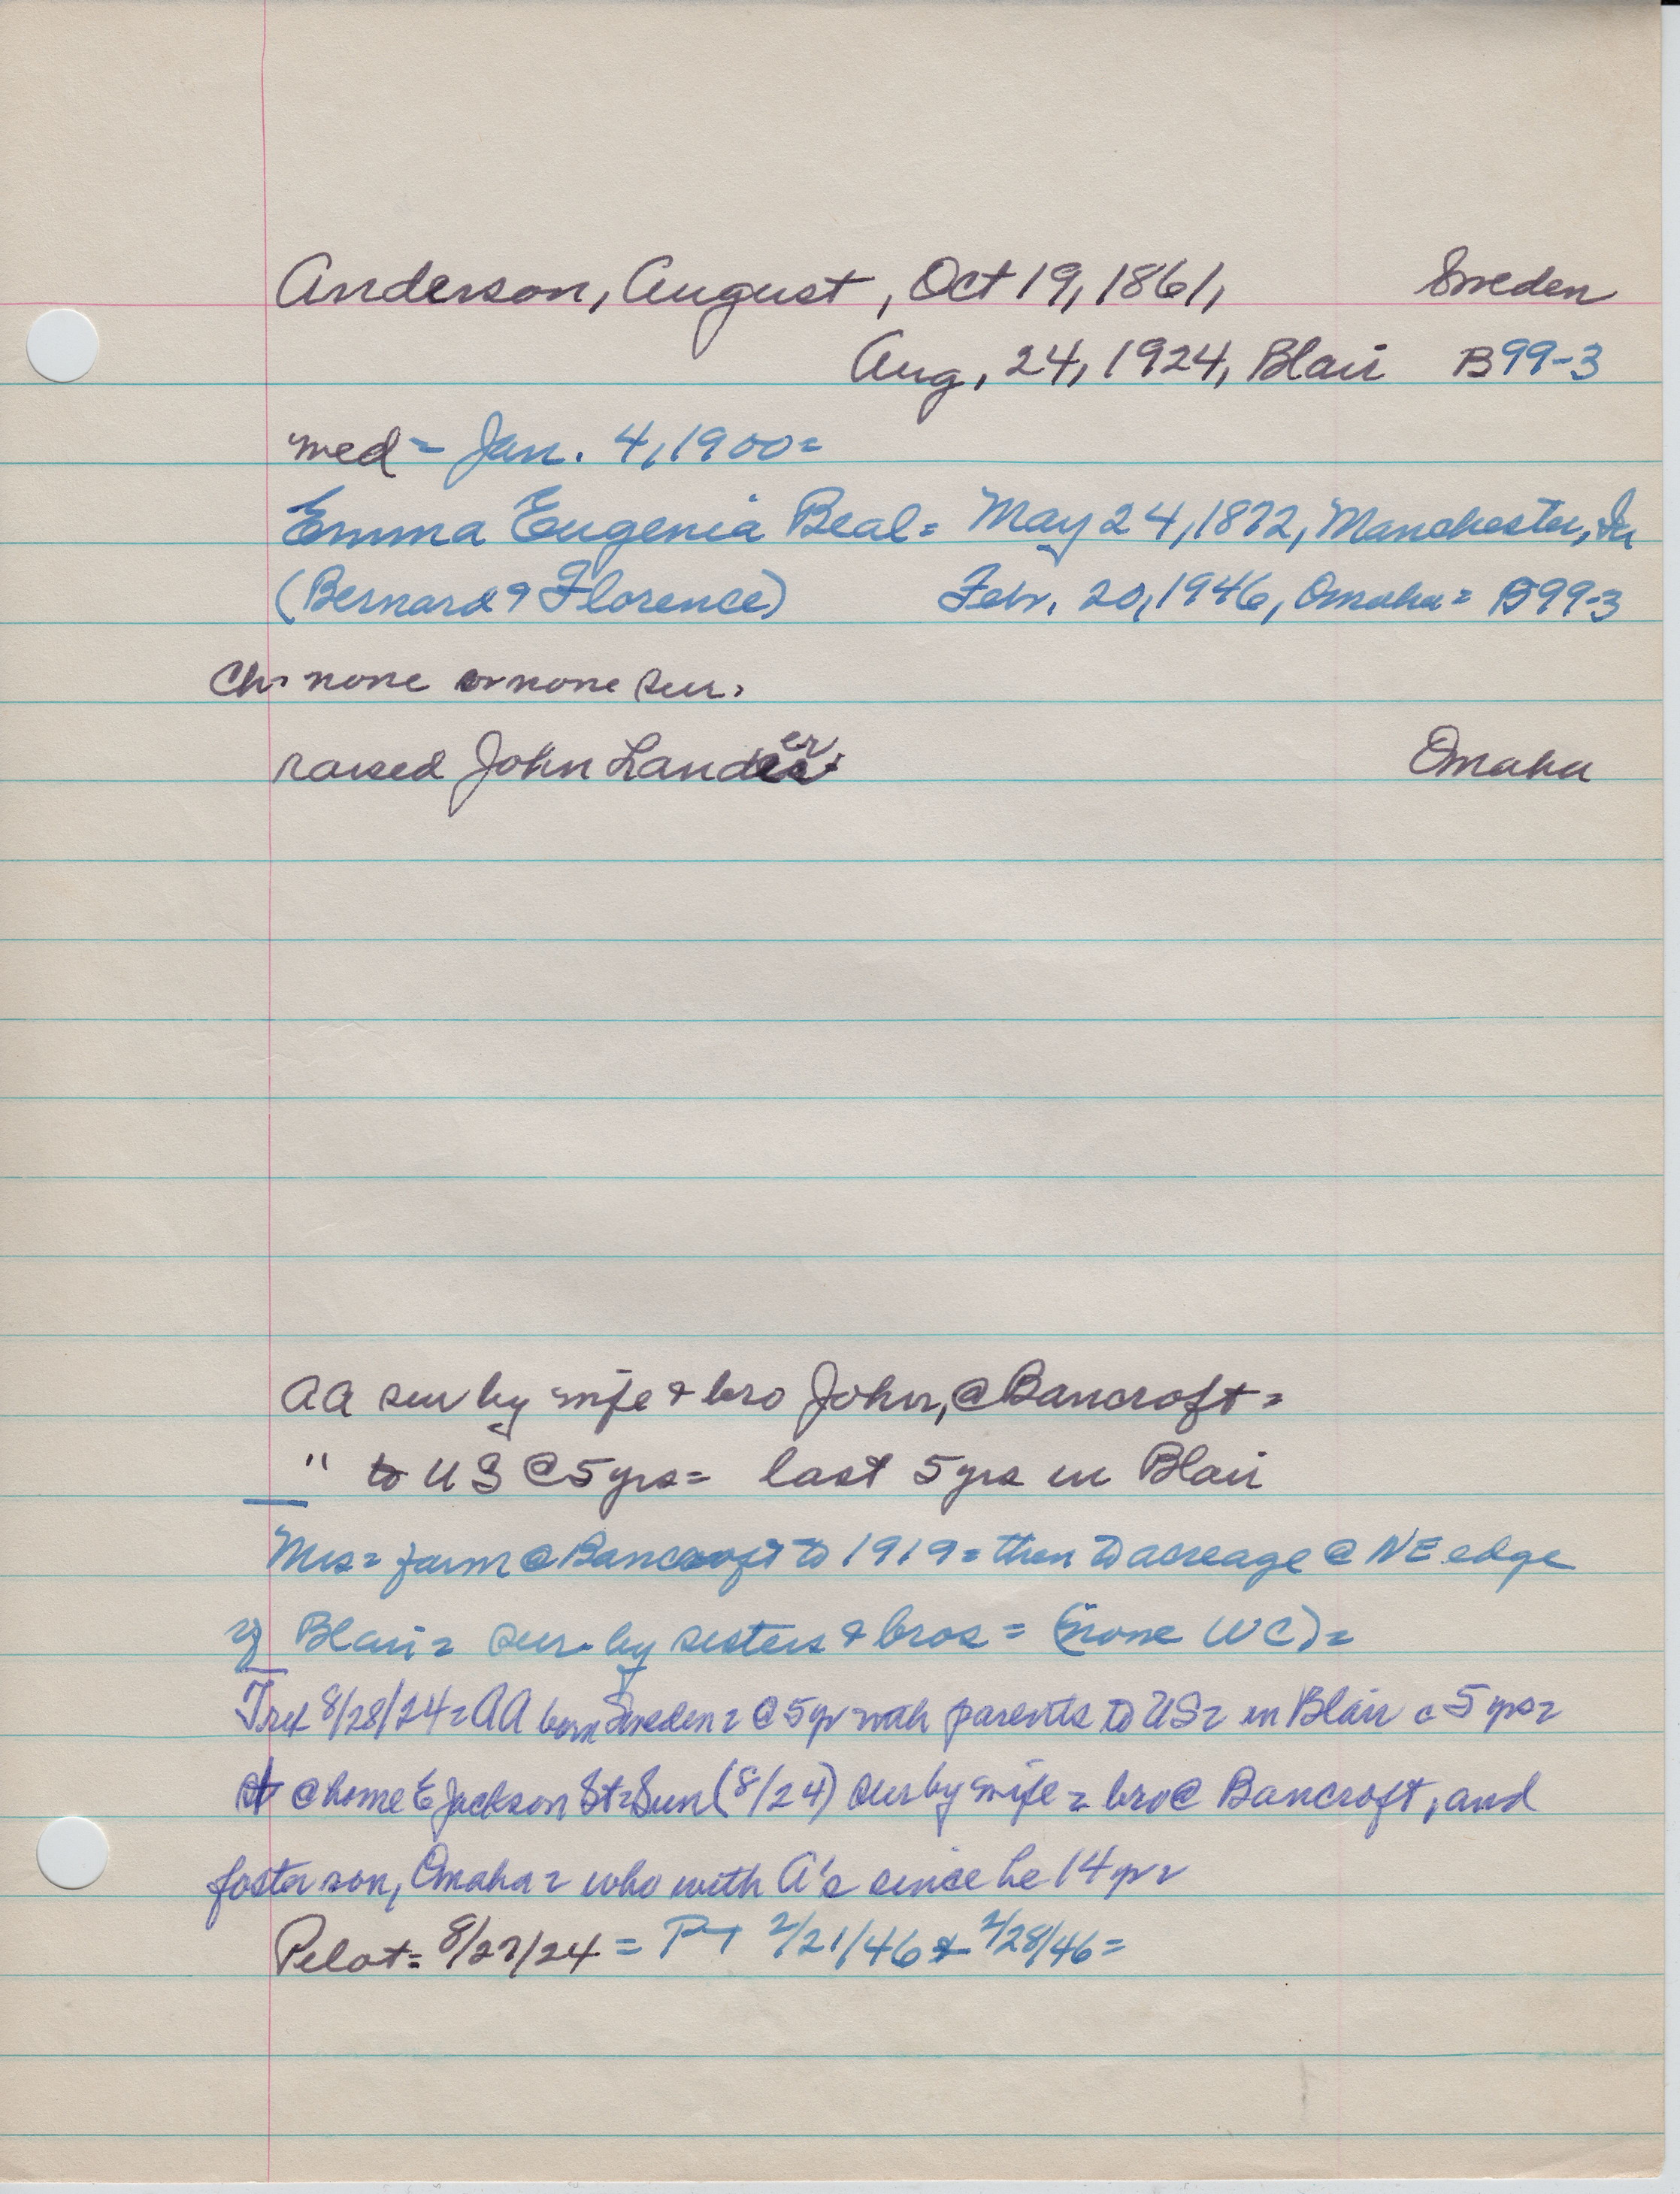 Anderson, August, Oct 19, 1861, Sweden
Aug, 24, 1924, Blair B99-3
med = Jan. 4, 1900=
Emma Eugenia Beal= May 24, 1872, Manchester, Ia
(Bernard & Florence) Febr. 20, 1946, Omaha= B99-3
Ch: none or none sur.
raised John Lander Omaha
AA sur by wife & bro John, @ Bancroft=
" to US @ 5 yrs= last 5 yrs in Blair
Mrs= farm @ Bancroft to 1919= then to acreage @ NE edge
of Blair= sur. by sisters & bros = (none WC)=
8/28/24= AA born Sweden= @ 5 yr with parents to US= in Blair c 5 yrs=
@ home E Jackson St= Sun (8/24) sur by wife = bro @ Bancroft, and
foster son, Omaha= who with A's since he 14 yr=
Pilot= 8/27/24 = PT 2/21/46 & 2/28/46=